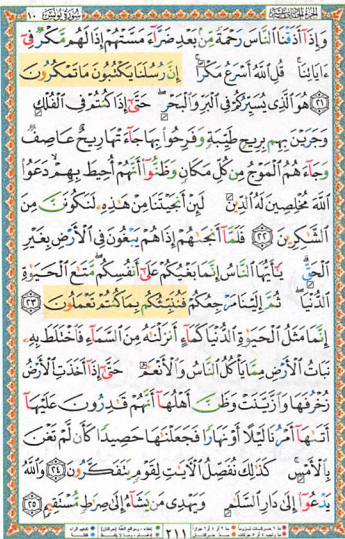 سورة يونس ١٠
الجزء الحادي عشر
وَإِذَآ أَذَقْنَا ٱلنَّاسَ رَحْمَةً مِّنۢ بَعْدِ ضَرَّآءَ مَسَّتْهُمْ إِذَا لَهُم مَّكْرٌ فِىٓ
ءَايَاتِنَا ۚ قُلِ ٱللَّهُ أَسْرَعُ مَكْرًا ۚ إِنَّ رُسُلَنَا يَكْتُبُونَ مَا تَمْكُرُونَ
٢١ هُوَ ٱلَّذِى يُسَيِّرُكُمْ فِى ٱلْبَرِّ وَٱلْبَحْرِ ۖ حَتَّىٰٓ إِذَا كُنتُمْ فِى ٱلْفُلْكِ
وَجَرَيْنَ بِهِم بِرِيحٍ طَيِّبَةٍ وَفَرِحُوا۟ بِهَا جَآءَتْهَا رِيحٌ عَاصِفٌ
وَجَآءَهُمُ ٱلْمَوْجُ مِن كُلِّ مَكَانٍ وَظَنُّوٓا۟ أَنَّهُمْ أُحِيطَ بِهِمْ ۙ دَعَوُا۟
ٱللَّهَ مُخْلِصِينَ لَهُ ٱلدِّينَ لَئِنْ أَنجَيْتَنَا مِنْ هَٰذِهِۦ لَنَكُونَنَّ مِنَ
ٱلشَّٰكِرِينَ ٢٢ فَلَمَّآ أَنجَىٰهُمْ إِذَا هُمْ يَبْغُونَ فِى ٱلْأَرْضِ بِغَيْرِ
ٱلْحَقِّ ۗ يَٰٓأَيُّهَا ٱلنَّاسُ إِنَّمَا بَغْيُكُمْ عَلَىٰٓ أَنفُسِكُم ۖ مَّتَٰعَ ٱلْحَيَوٰةِ
ٱلدُّنْيَا ۖ ثُمَّ إِلَيْنَا مَرْجِعُكُمْ فَنُنَبِّئُكُم بِمَا كُنتُمْ تَعْمَلُونَ ٢٣
إِنَّمَا مَثَلُ ٱلْحَيَوٰةِ ٱلدُّنْيَا كَمَآءٍ أَنزَلْنَٰهُ مِنَ ٱلسَّمَآءِ فَٱخْتَلَطَ بِهِۦ
نَبَاتُ ٱلْأَرْضِ مِمَّا يَأْكُلُ ٱلنَّاسُ وَٱلْأَنْعَٰمُ حَتَّىٰٓ إِذَآ أَخَذَتِ ٱلْأَرْضُ
زُخْرُفَهَا وَٱزَّيَّنَتْ وَظَنَّ أَهْلُهَآ أَنَّهُمْ قَٰدِرُونَ عَلَيْهَآ
أَتَىٰهَآ أَمْرُنَا لَيْلًا أَوْ نَهَارًا فَجَعَلْنَٰهَا حَصِيدًا كَأَن لَّمْ تَغْنَ
بِٱلْأَمْسِ ۚ كَذَٰلِكَ نُفَصِّلُ ٱلْءَايَٰتِ لِقَوْمٍ يَتَفَكَّرُونَ ٢٤ وَٱللَّهُ
يَدْعُوٓا۟ إِلَىٰ دَارِ ٱلسَّلَٰمِ وَيَهْدِى مَن يَشَآءُ إِلَىٰ صِرَٰطٍ مُّسْتَقِيمٍ ٢٥
٢١١